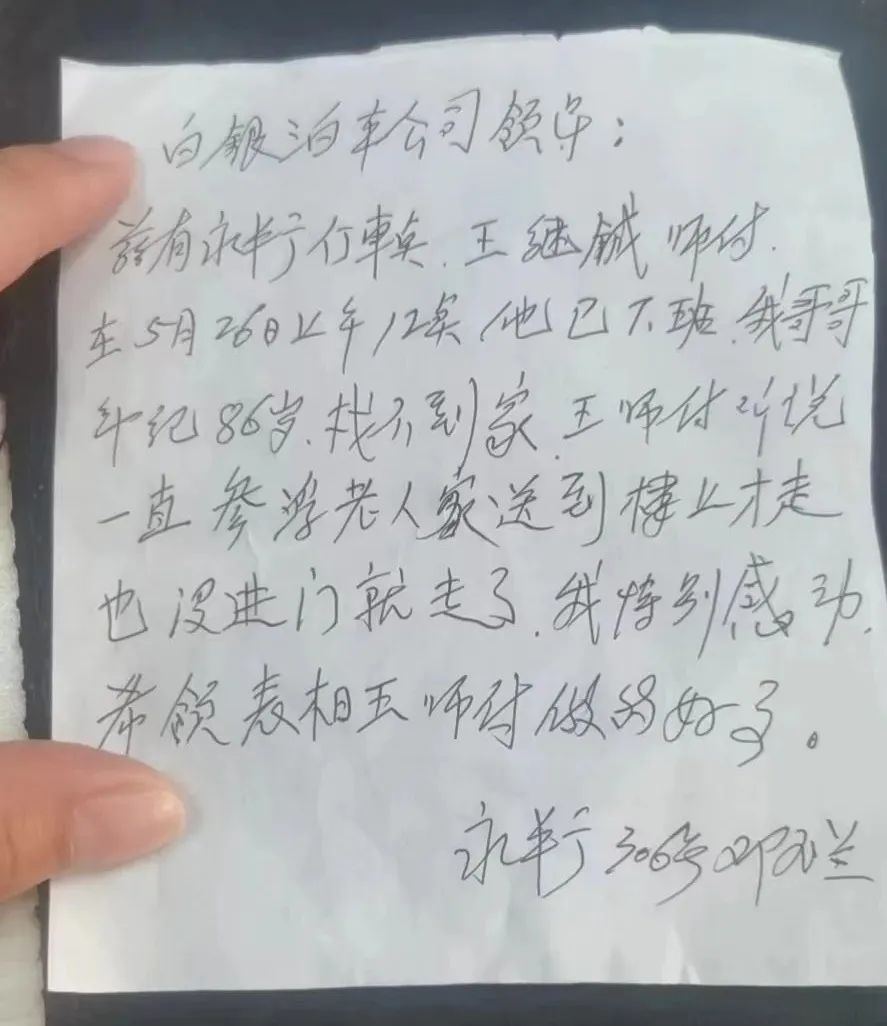 白银泊车公司领导：
兹有永丰行车点.王继铖师付.
在5月26日上午12点他已下班.我哥哥
年纪86岁.找不到家.王师付听说
一直参浮老人家送到楼上才走
也没进门就走了.我特别感动.
希领表相王师付做的好事。
永丰 306号邓玉兰